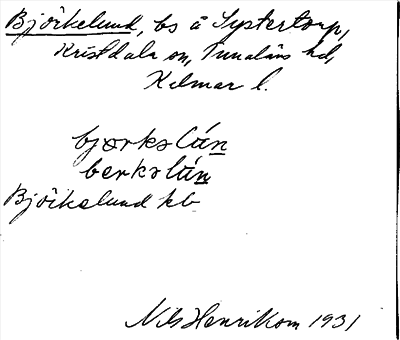 Björkelund, bs å Systertorp,
Kristdala sn, Tunaläns hd,
Kalmar l.
bjɷrkəlún̲
bɛrkəlún̲
Björkelund kb
Nils Henrikson 1931